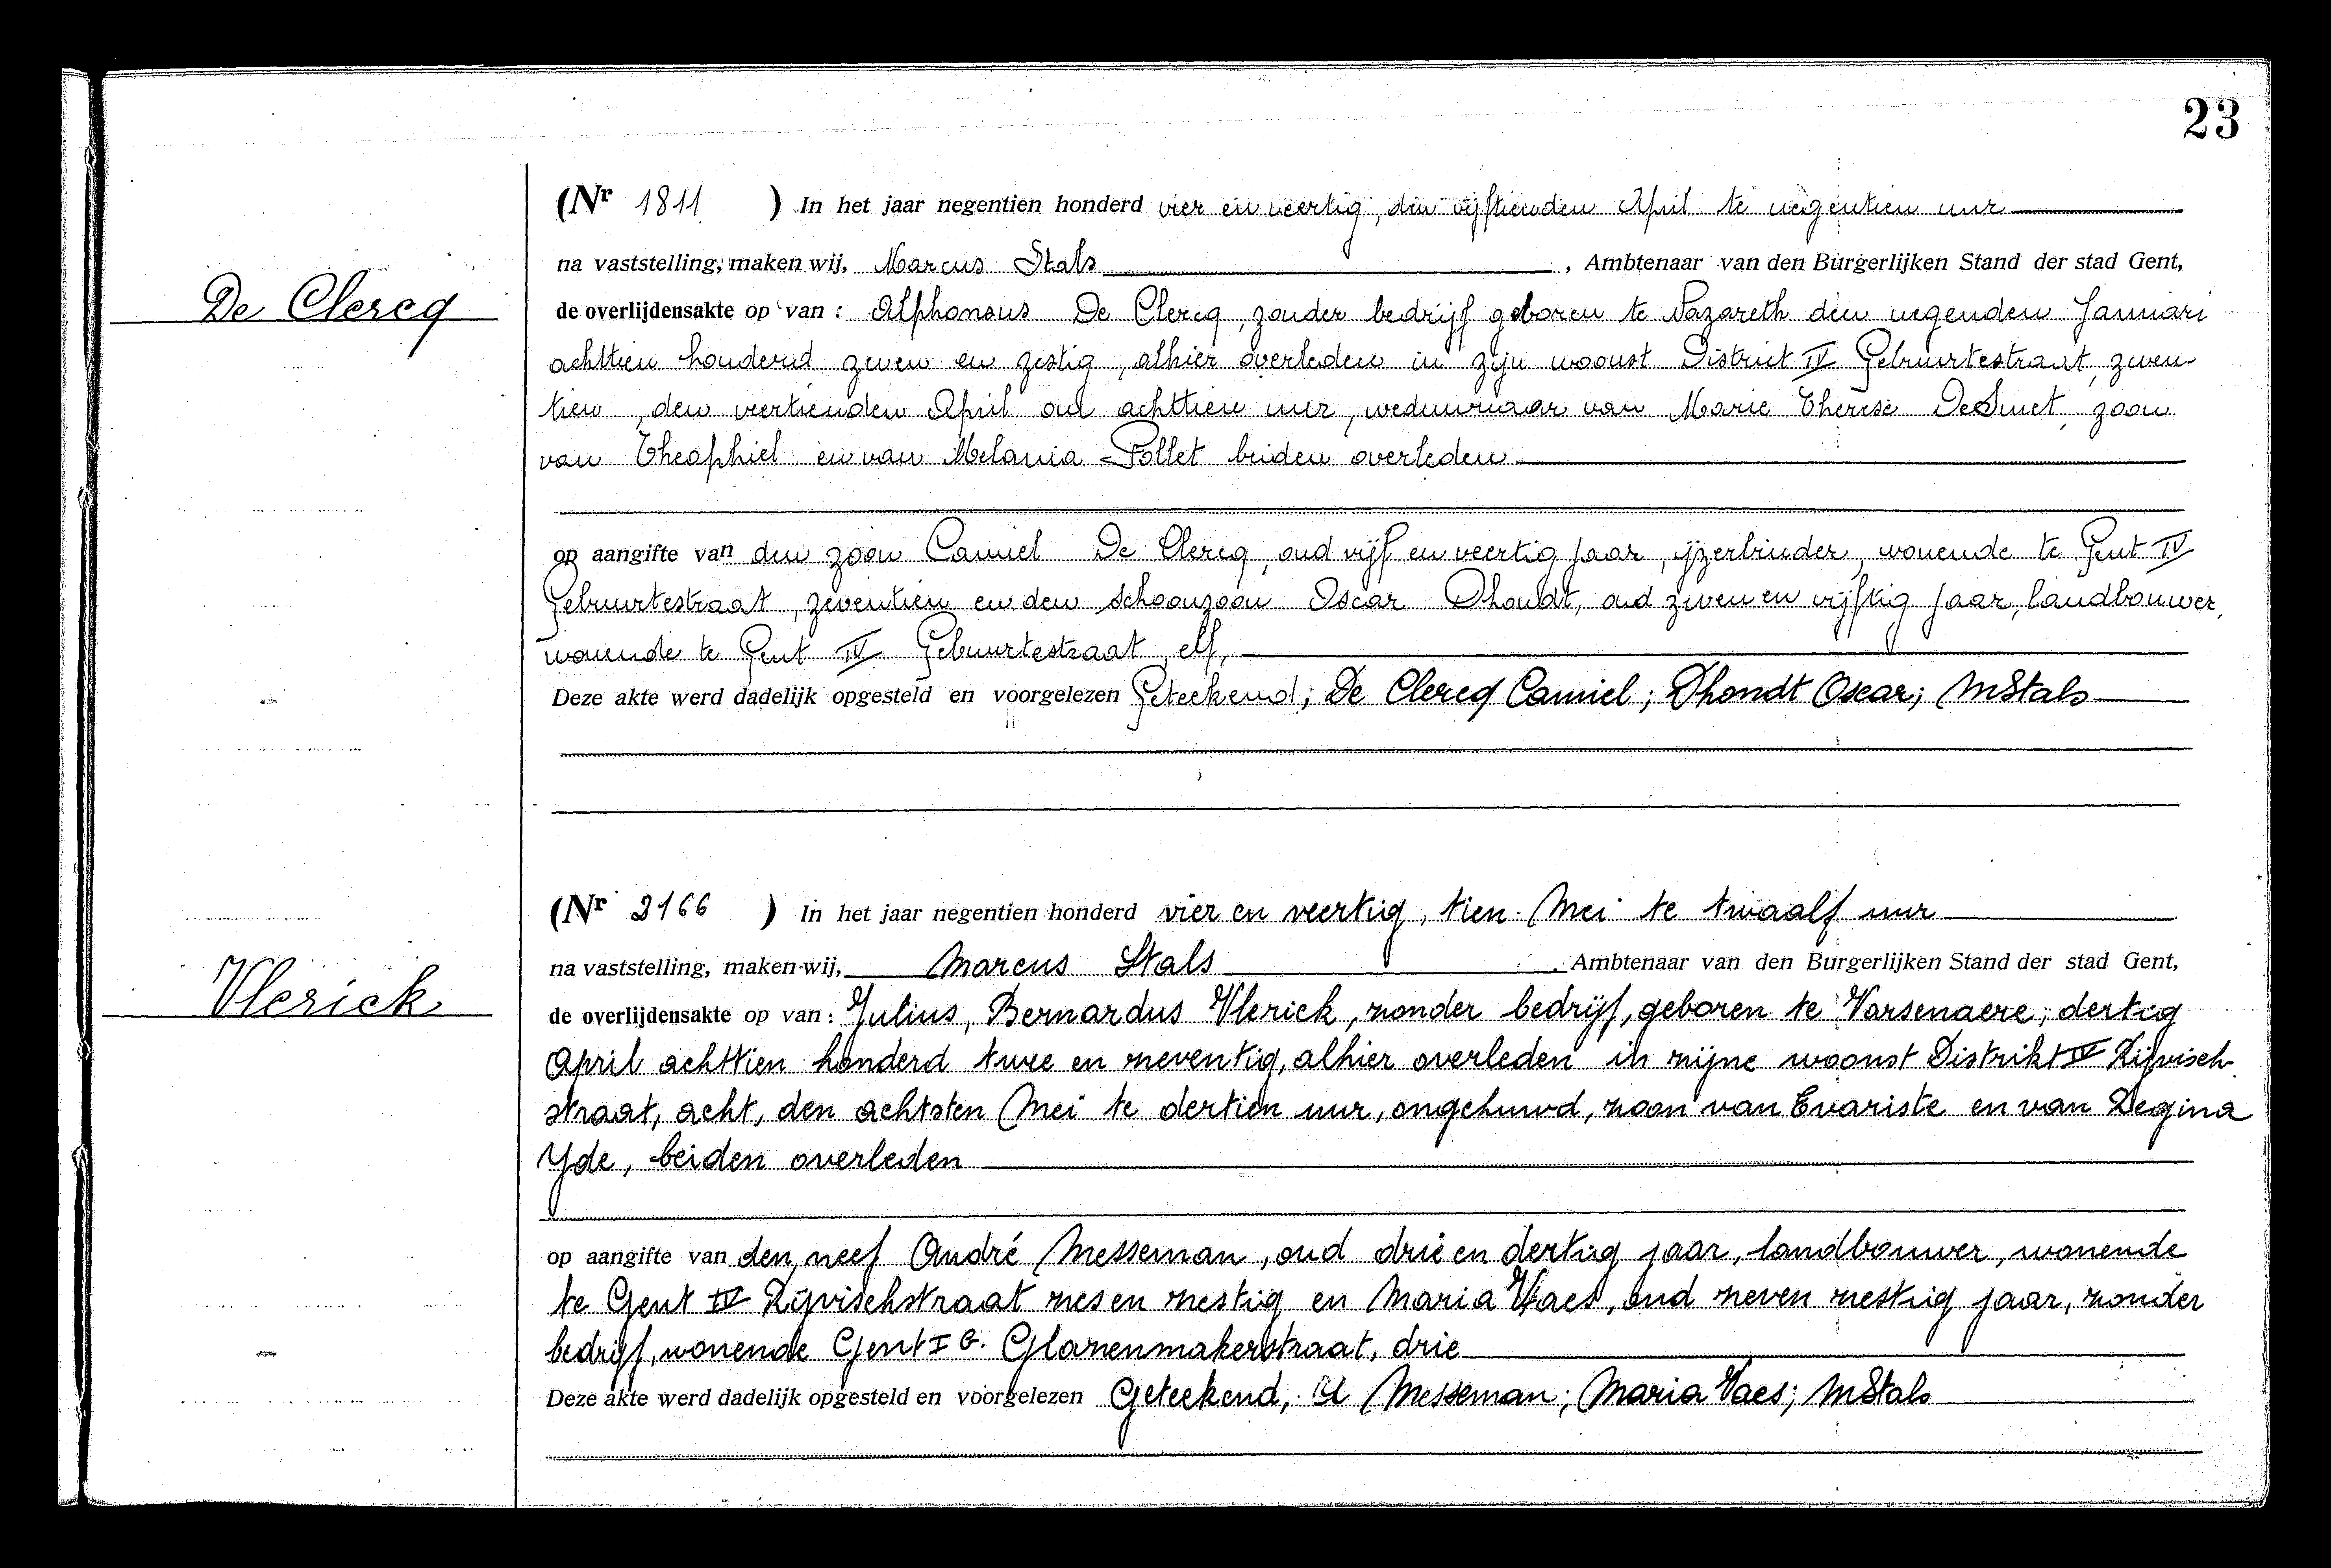 23
(Nr 1811 ) In het jaar negentien honderd vier en veertig, den vijftienden April te negentien uur
na vaststelling, maken wij, Marcus Stals, Ambtenaar van den Burgerlijken Stand der stad Gent,
De Clercq
de overlijdensakte op van : Alphonsus De Clercq, zonder bedrijf geboren te Nazareth den negenden Januari
achttien honderd zeven en zestig, alhier overleden in zijn woonst District IV Gebuurtestraat, zeven
tien, den veertienden April om achttien uur, weduwnaar van Marie Therese De Smet, zoon
van Theophiel en van Melania Pollet beiden overleden
op aangifte van den zoon Camiel De Clercq, oud vijf en veertig jaar, ijzerbinder, wonende te Gent IV
Gebuurtestraat, zeventien en den schoonzoon Oscar Dhondt, oud zeven en vijftig jaar, landbouwer,
wonende te Gent IV Gebuurtestraat, elf,
Deze akte werd dadelijk opgesteld en voorgelezen Geteekend; De Clercq Camiel; Dhondt Oscar; MStals
(Nr 2166 ) In het jaar negentien honderd vier en veertig, tien Mei te twaalf uur
na vaststelling, maken wij, Marcus Stals, Ambtenaar van den Burgerlijken Stand der stad Gent,
Vlerick
de overlijdensakte op van : Julius, Bernardus Vlerick, zonder bedrijf, geboren te Varsenaere, dertig
April achttien honderd twee en zeventig, alhier overleden in zijne woonst Distrikt IV Rijvisch
straat, acht, den achtsten Mei te dertien uur, ongehuwd, zoon van Evariste en van Regina
Yde, beiden overleden
op aangifte van den neef André Messeman, oud drie en dertig jaar, landbouwer, wonende
te Gent IV Rijvischstraat zes en zestig en Maria Vaes, oud zeven zestig jaar, zonder
bedrijf, wonende Gent I G. Glazenmakerstraat, drie
Deze akte werd dadelijk opgesteld en voorgelezen Geteekend, A Messeman; Maria Vaes; MStals